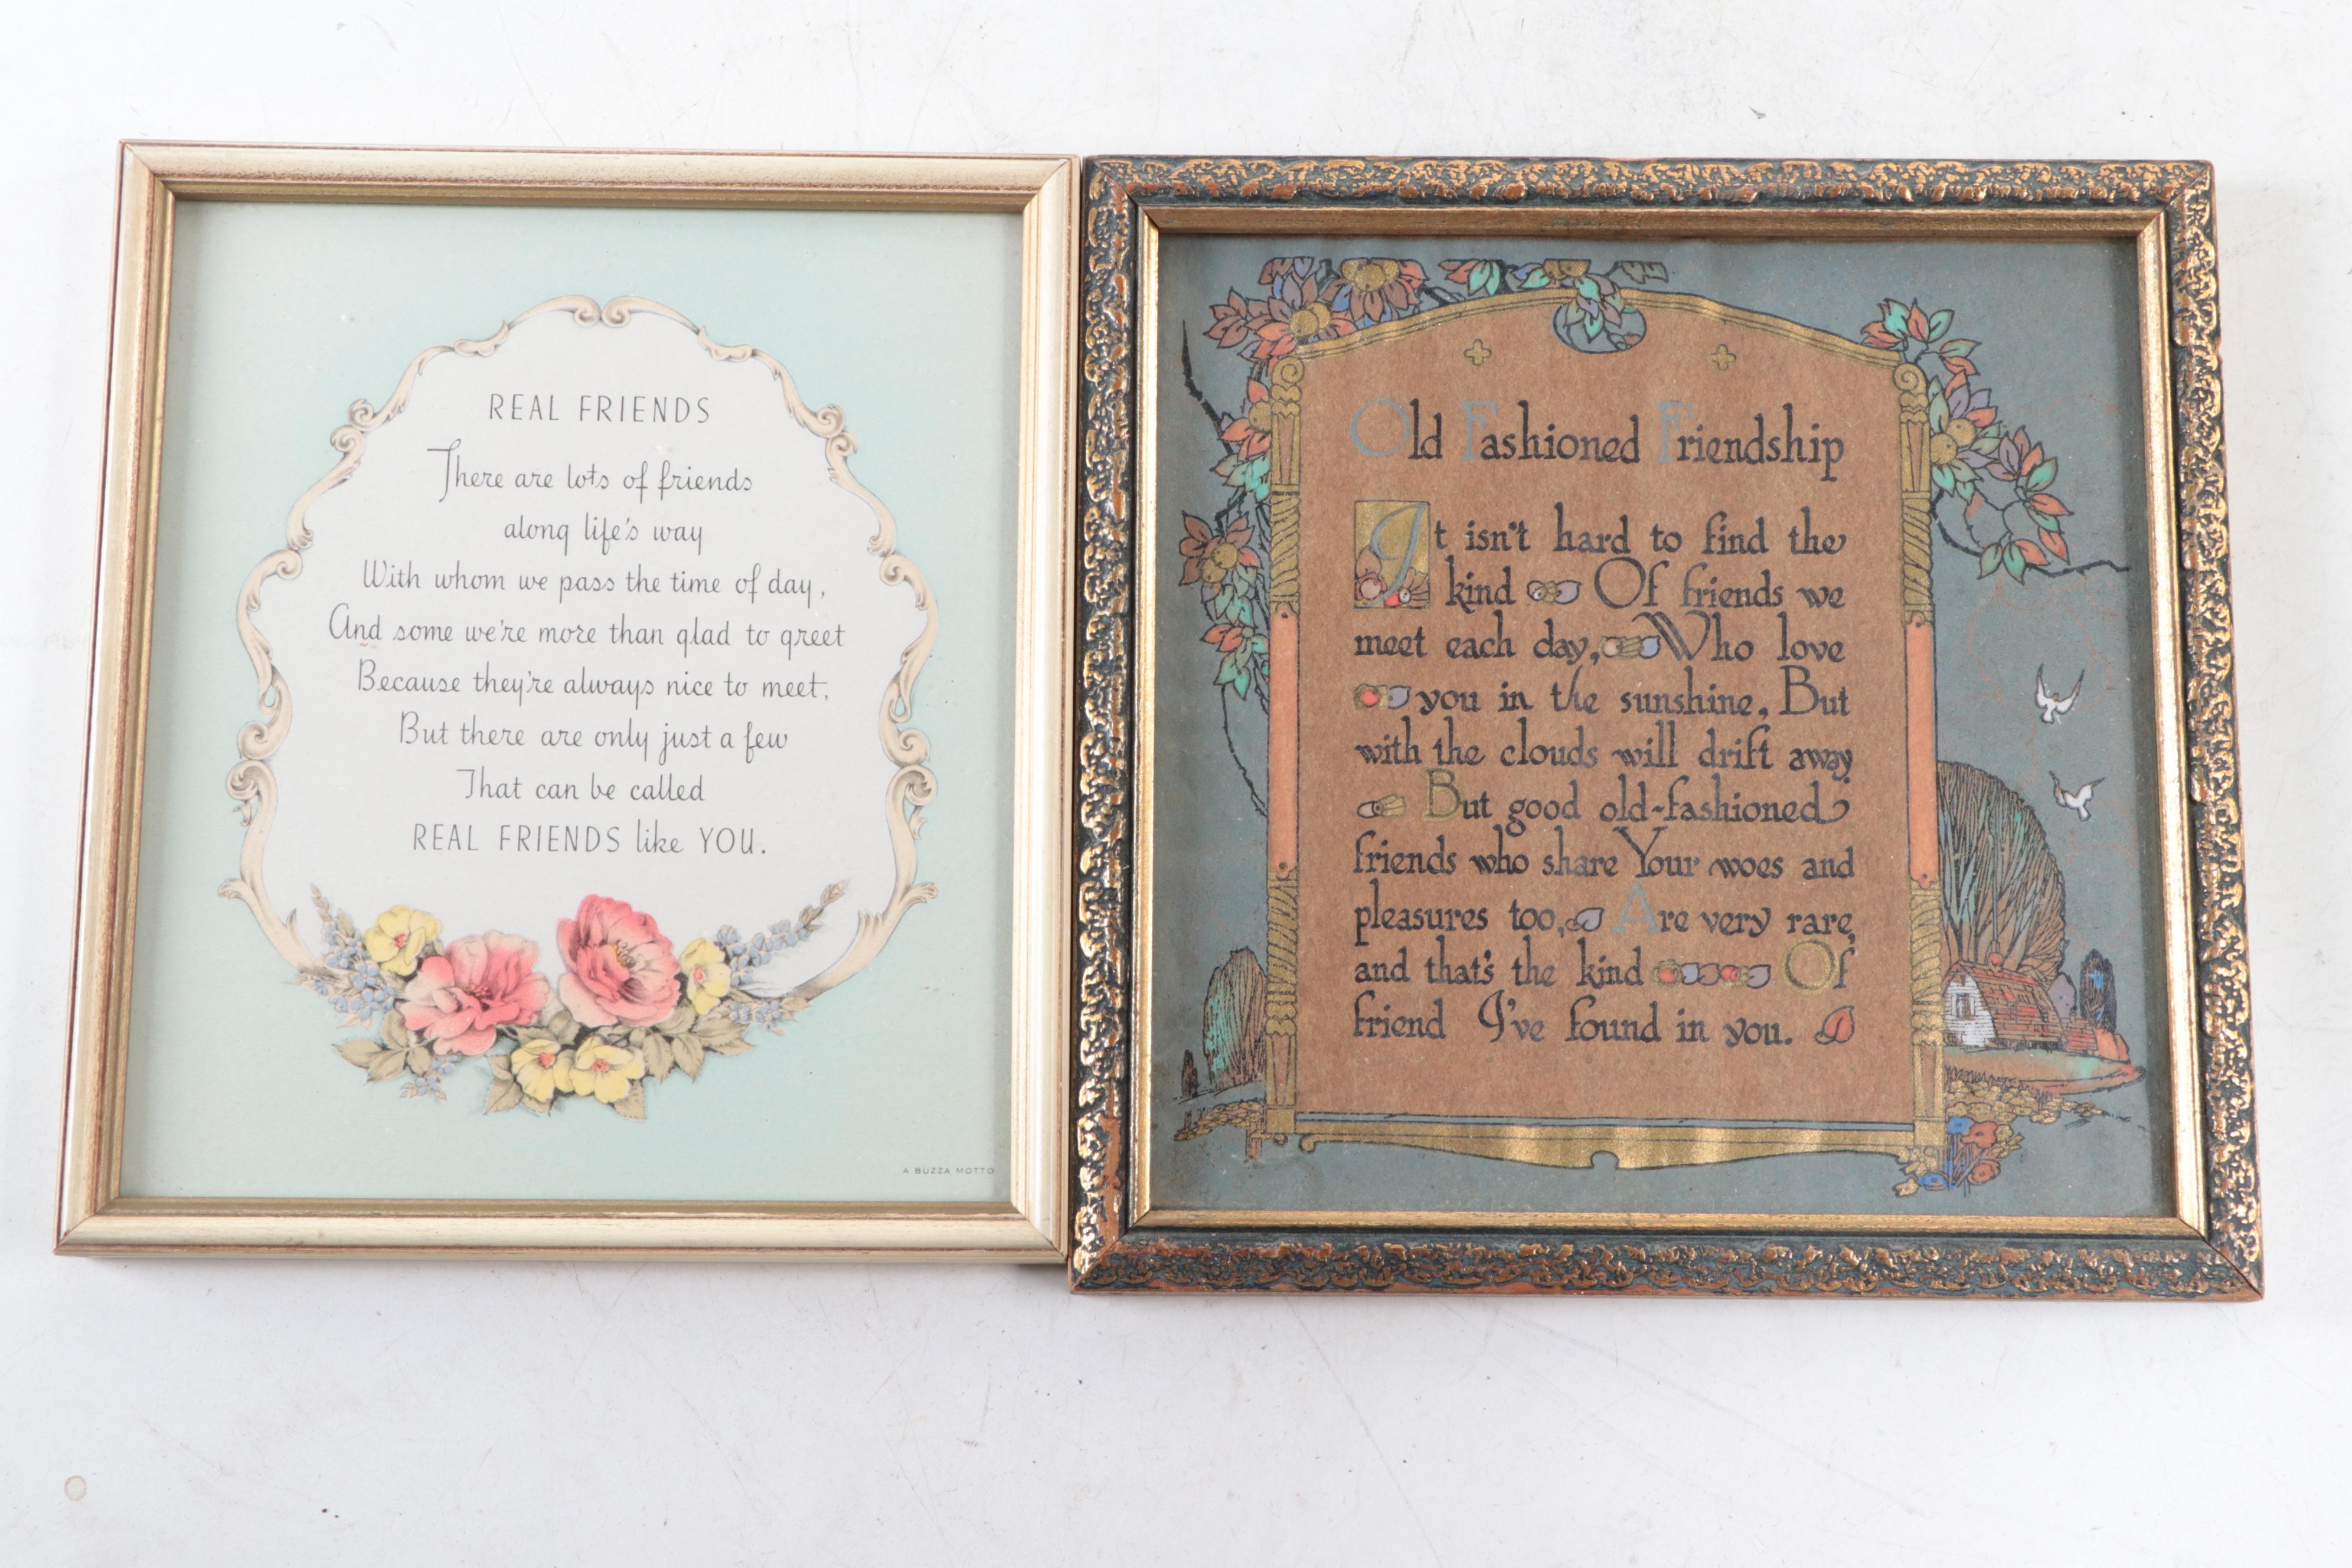 REAL FRIENDS
There are lots of friends
along life's way
With whom we pass the time of day,
And some we're more than glad to greet
Because they're always nice to meet,
But there are only just a few
That can be called
REAL FRIENDS like YOU.
A BUZZA MOTTO
Old Fashioned Friendship
It isn't hard to find the
kind Of friends we
meet each day, Who love
you in the sunshine, But
with the clouds will drift away
But good old-fashioned
friends who share Your woes and
pleasures too, Are very rare,
and that's the kind Of
friend I've found in you.